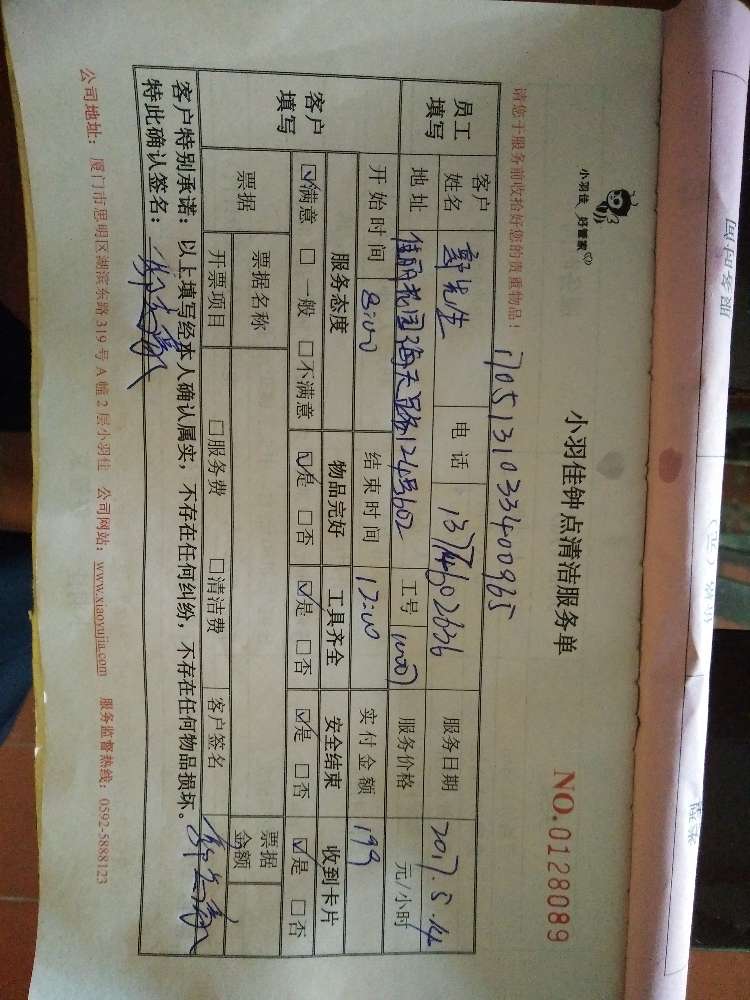 小羽佳 好管家
小羽佳钟点清洁服务单
NO.0128089
请您于服务前收拾好您的贵重物品！
17051310333400965
员工填写 客户姓名 郭先生 电话 13774602636 服务日期 2017.5.14
地址 佳丽花园海天路124号602 工号 服务价格 元/小时
客户填写 开始时间 8:00 结束时间 12:00 实付金额 199
服务态度 物品完好 工具齐全 安全结束 收到卡片
☑满意 □一般 □不满意 ☑是 □否 ☑是 □否 ☑是 □否 ☑是 □否
票据 票据名称 票据金额
开票项目 □服务费 □清洁费 客户签名
客户特别承诺：以上填写经本人确认属实，不存在任何纠纷，不存在任何物品损坏。
特此确认签名：
公司地址：厦门市思明区湖滨东路319号A幢2层小羽佳 公司网站：www.xiaoyujia.com 服务监督热线：0592-5888123